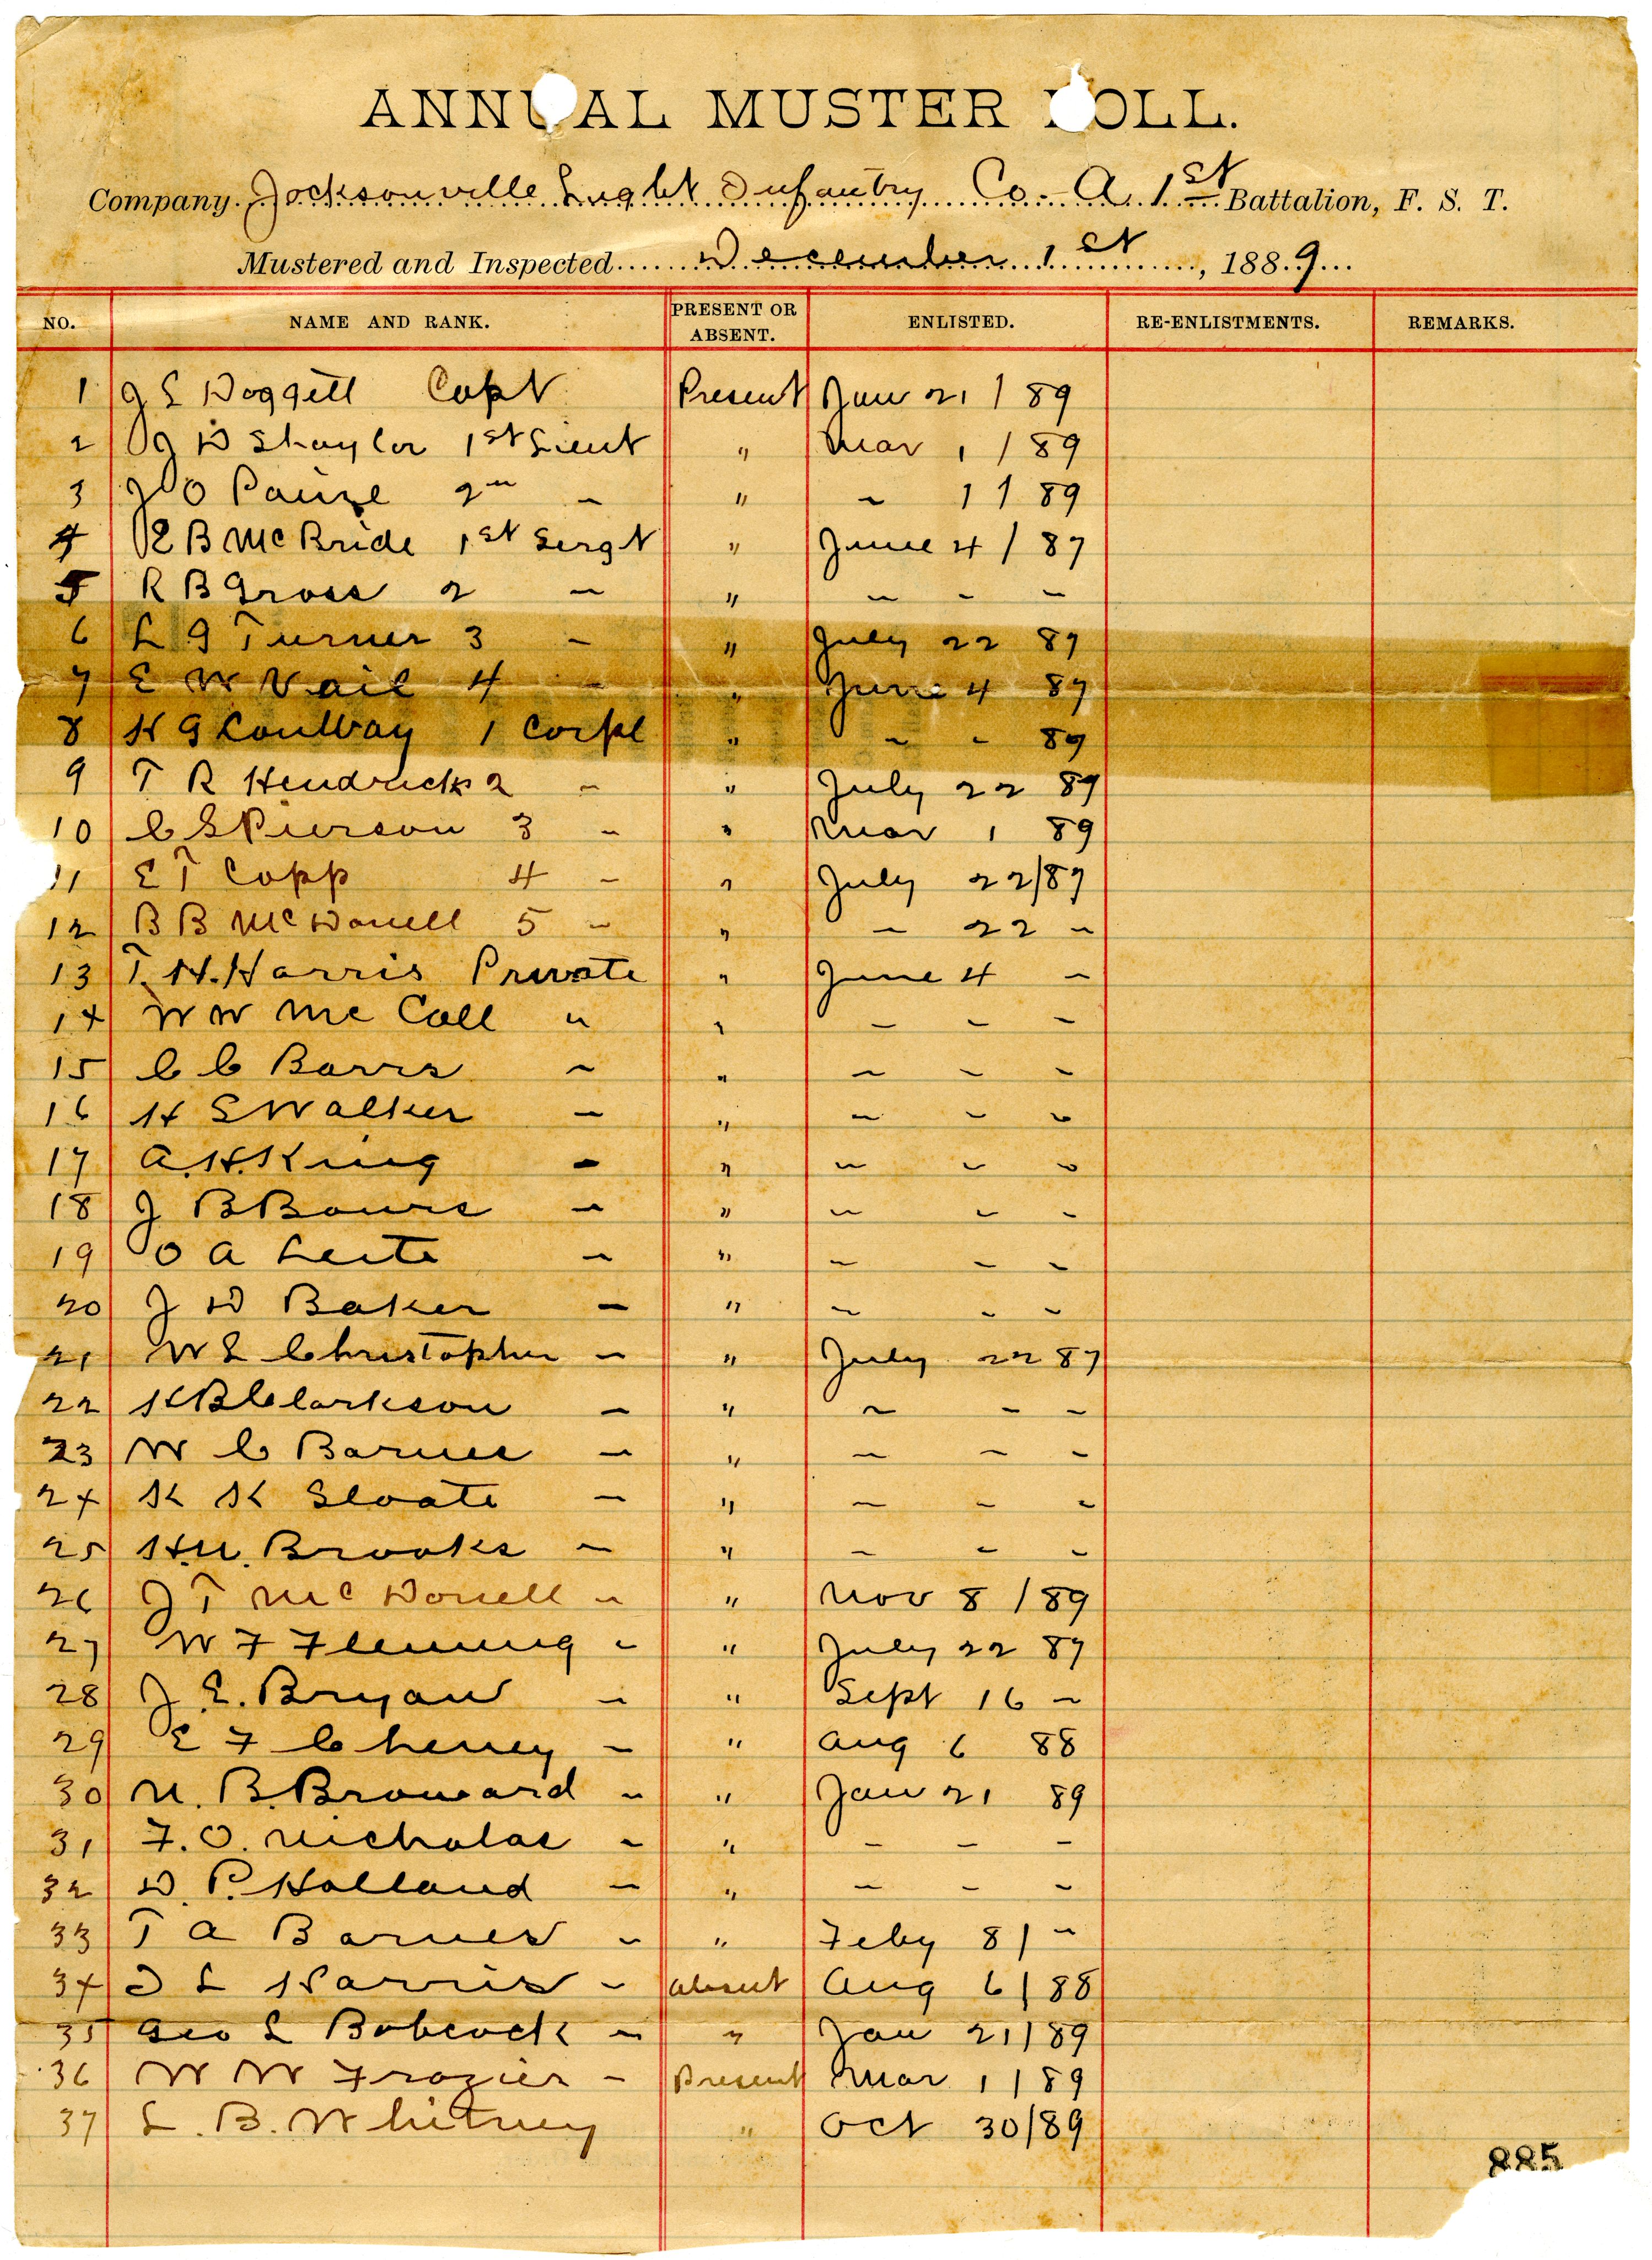 ANNUAL MUSTER ROLL.
Company Jacksonville Light Infantry Co. A 1st Battalion, F. S. T.
Mustered and Inspected December 1st, 1889
NO. NAME AND RANK. PRESENT OR ABSENT. ENLISTED. RE-ENLISTMENTS. REMARKS.
1 J L Doggett Capt Present Jan 21 / 89
2 J D Shaylor 1st Lieut " Mar 1 / 89
3 J O 2nd ~ " ~ 1 / 89
4 E B McBride 1st Sergt " June 4 / 87
5 R B Gross 2 ~ " ~ ~ ~
6 L G Turner 3 ~ " July 22 87
7 E W Vail 4 ~ " June 4 87
8 H G 1 Corpl " ~ ~ 87
9 T R Hendricks 2 ~ " July 22 87
10 C S Pierson 3 ~ " Mar 1 89
11 E T Copp 4 ~ " July 22/87
12 B B McDonell 5 ~ " ~ 22 ~
13 T. H. Harris Private " June 4 ~
14 W W McCall " " ~ ~ ~
15 C C Barrs ~ " ~ ~ ~
16 H S Walker ~ " ~ ~ ~
17 A. H. King ~ " ~ ~ ~
18 J B Bours ~ " ~ ~ ~
19 O A ~ " ~ ~ ~
20 J D Baker ~ " ~ ~ ~
21 W L Christopher ~ " July 22 87
22 K B Clarkson ~ " ~ ~ ~
23 W C Barnes ~ " ~ ~ ~
24 K K Sloate ~ " ~ ~ ~
25 Brooks ~ " ~ ~ ~
26 J T McDonell ~ " Nov 8 / 89
27 W F Fleming ~ " July 22 87
28 J. E. Bryan ~ " Sept 16 ~
29 E F Cheney ~ " Aug 6 88
30 N. B. Broward ~ " Jan 21 89
31 F. O. Nicholas ~ " ~ ~ ~
32 D. P. Holland ~ " ~ ~ ~
33 T A Barnes ~ " Feby 8 / ~
34 L Harris ~ Absent Aug 6 / 88
35 Geo L Babcock ~ " Jan 21 / 89
36 W W Frazier ~ Present Mar 1 / 89
37 L. B. Whitney " Oct 30/89
885